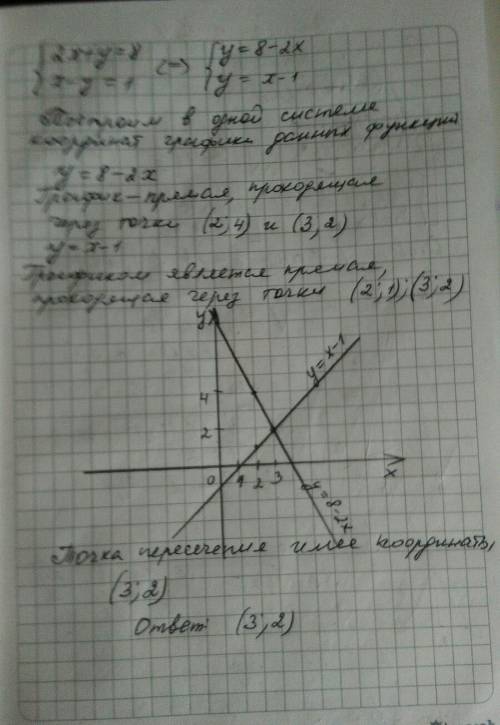 {2x+y=8 (=) {y=8-2x
{x-y=1 {y=x-1
Построим в одной системе
координат графики данных функций
y=8-2x
График-прямая, проходящая
через точки (2;4) и (3;2)
y=x-1
Графиком является прямая,
проходящая через точки (2;1);(3;2)
y
y=x-1
4
2
0 1 2 3 x
y=8-2x
Точка пересечения имее координаты
(3;2)
Ответ: (3;2)